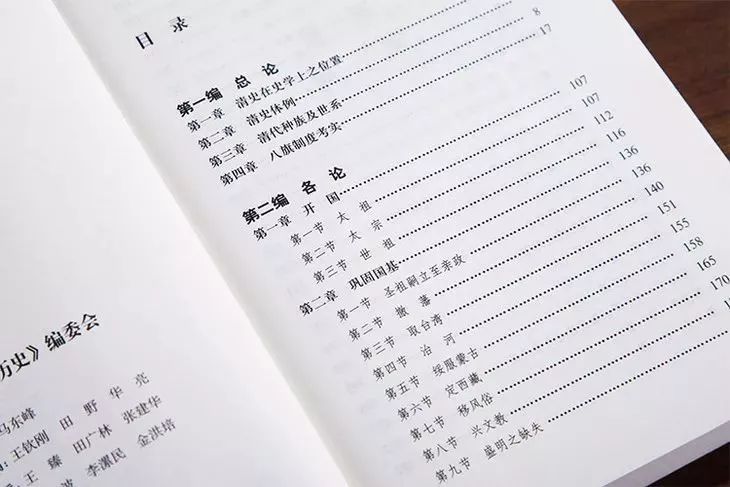 历史》编委会
马东峰
王钦刚 田 野 华 亮
王 臻 田广林 张建华
波 李漯民 金洪培
目 录
第一编 总 论
第一章 清史在史学上之位置
第二章 清史体例
第三章 清代种族及世系 8
第四章 八旗制度考实 17
第二编 各 论
第一章 开 国 107
第一节 太 祖 107
第二节 太 宗 112
第三节 世 祖 116
第二章 巩固国基 136
第一节 圣祖嗣立至亲政 136
第二节 撤 藩 140
第三节 取台湾 151
第四节 治 河 155
第五节 绥服蒙古 158
第六节 定西藏 165
第七节 移风俗 170
第八节 兴文教
第九节 盛明之缺失